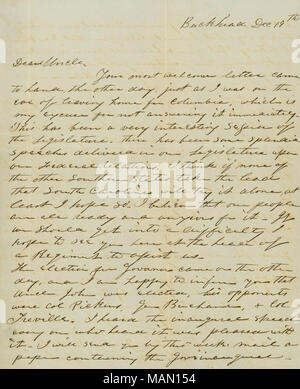 Buckhead Dec 19th
Dear Uncle,
Your most welcome letter came
to hand the other day, just as I was on the
eve of leaving home for Columbia, which is
my excuse for not answering it immediately.
This has been a very interesting session of
the Legislature. there has been some splendid
speeches delivered in our Legislature upon
our Federal relations, I think if none of
the other Southern States take the lead
that South Carolina will try it alone, at
least I hope so. I believe that our people
are ready and anxious for it. If
we should get into a difficulty I
hope to see you here at the head of
a Regiment to assist us.
The election for Governor came on the other
day, and I am happy to inform you that
Uncle John was elected, his opponents
were Pickens, Buchanan, & Col
Treville. I heard the inaugural speech
every one who heard it was pleased with
it. I will send you by this weeks mail a
paper containing the inaugural
a alamy
alamy
Image ID: MAN154
www.alamy.com